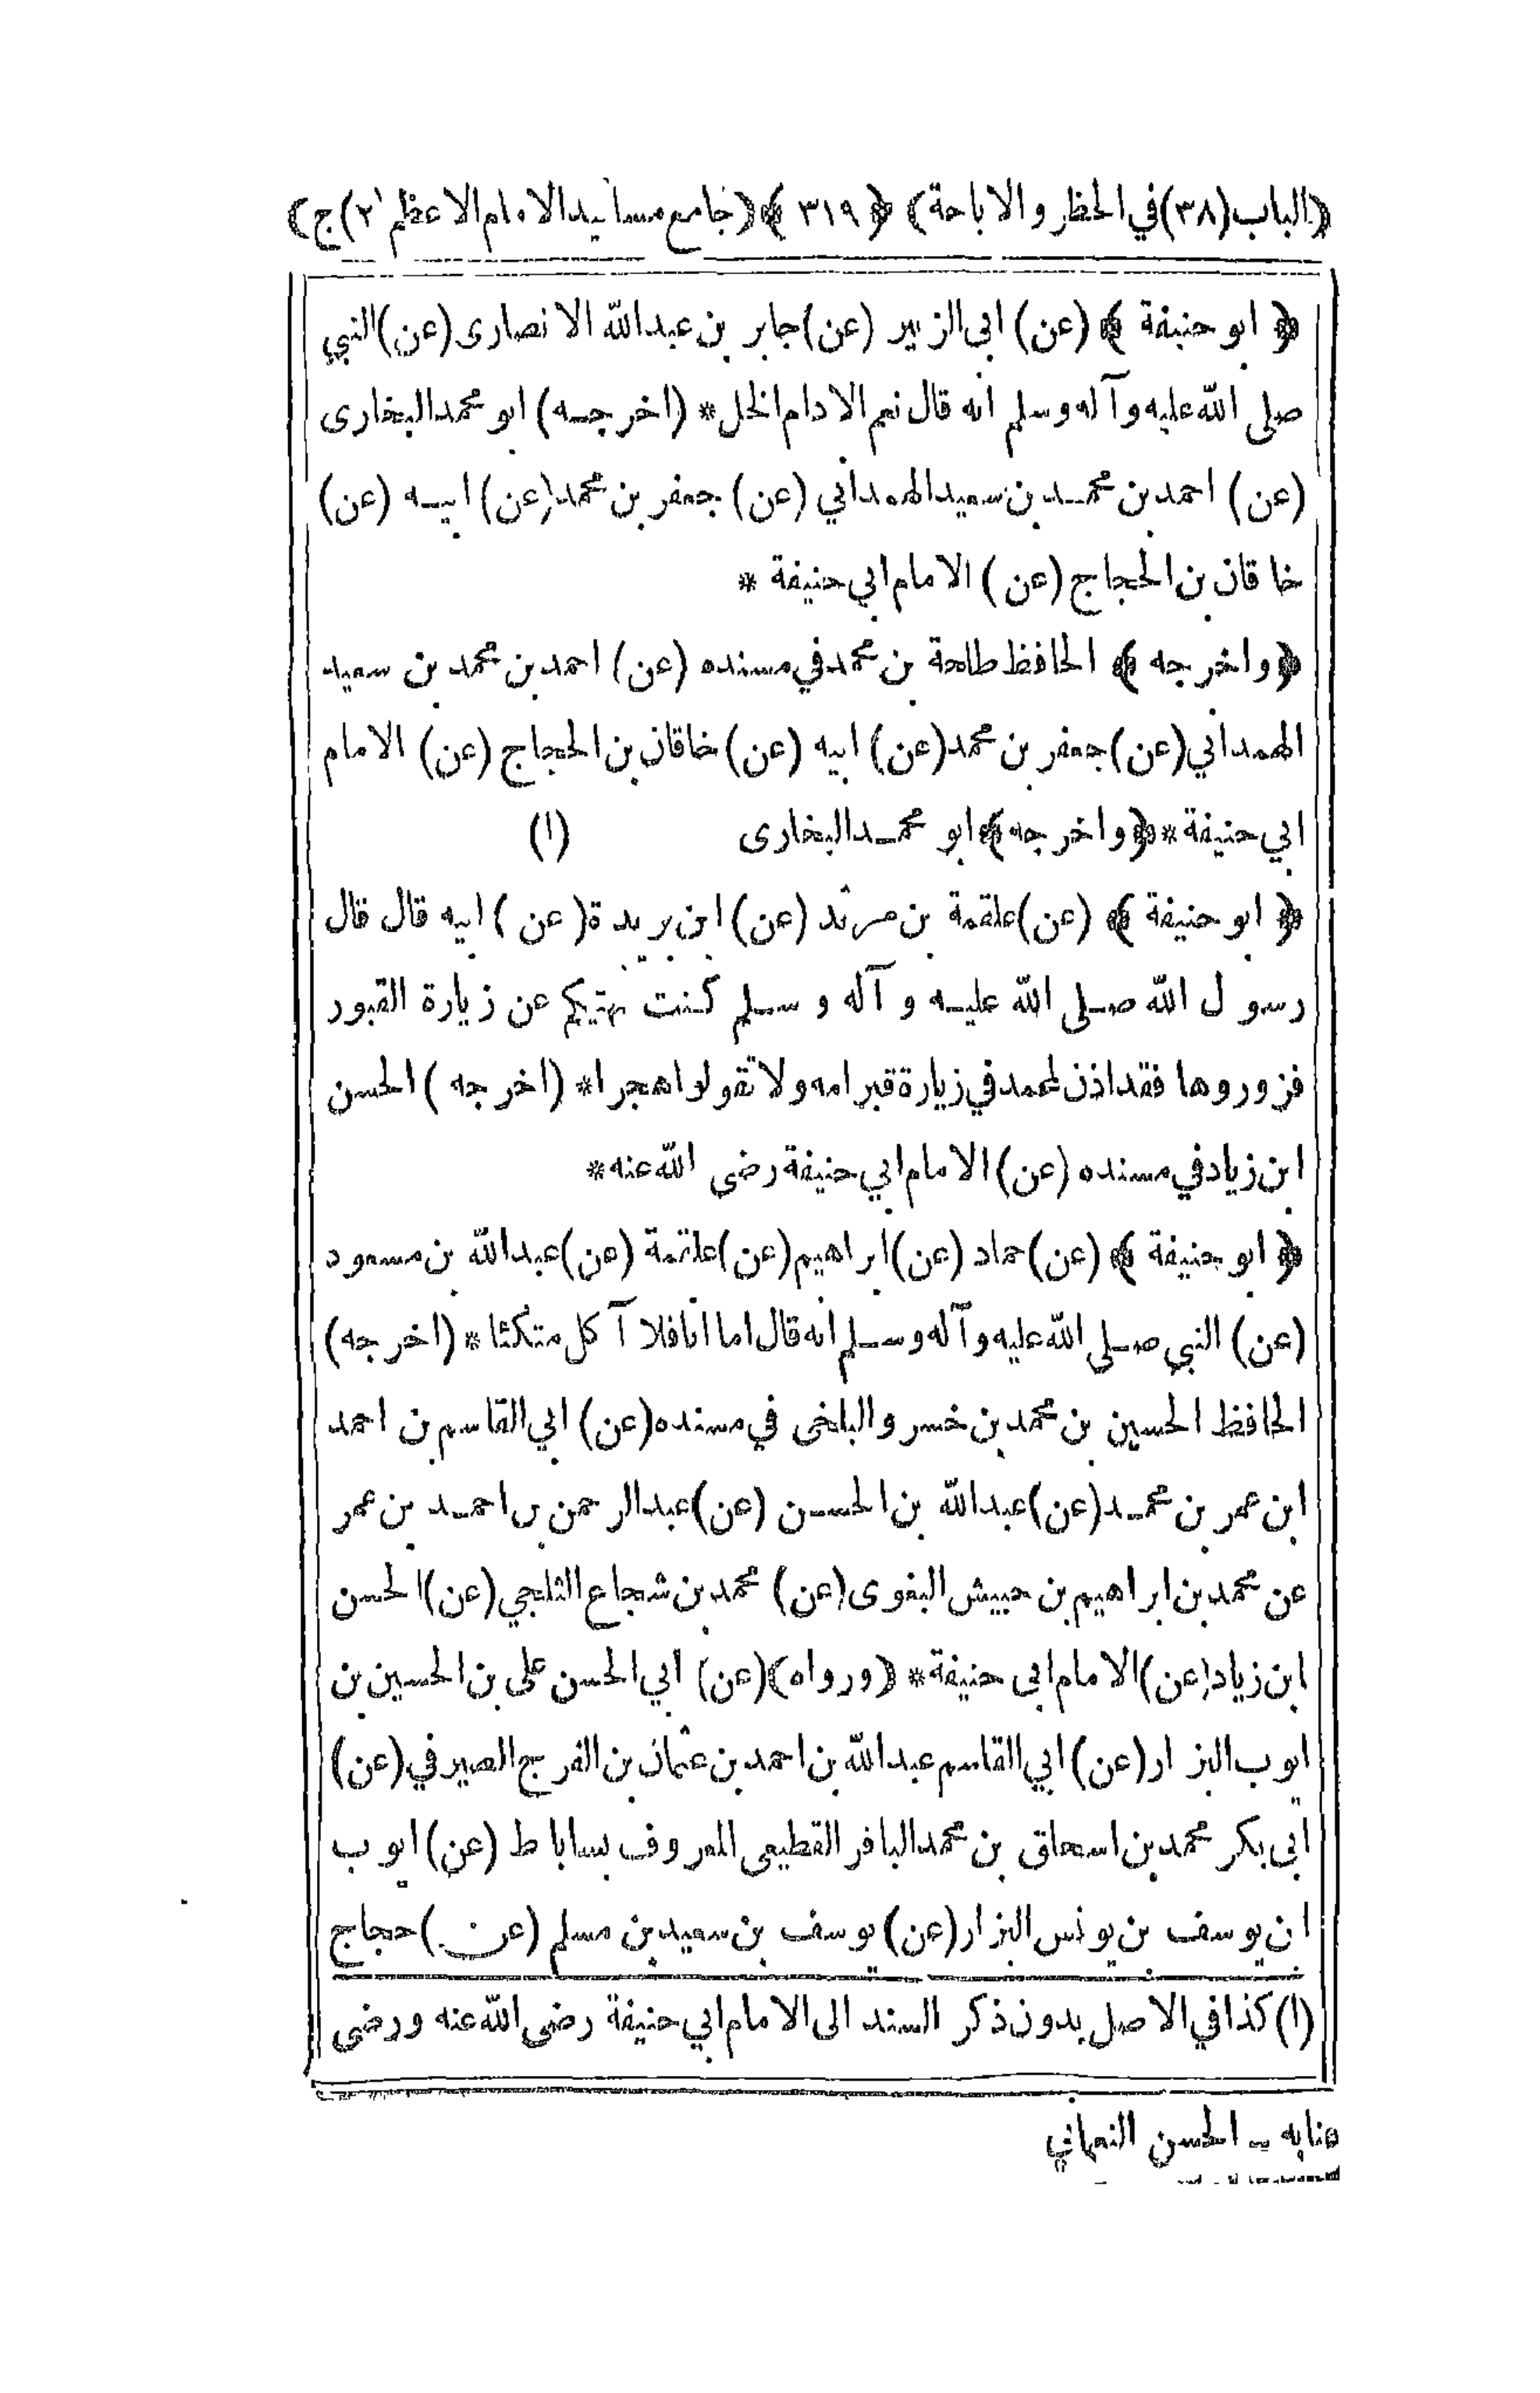 ﴿الباب (٣٨) في الحظر والاباحة﴾ ﴿ ٣١٩ ﴾ ﴿جامع مسانيد الامام الاعظم ٢)ج﴾
﴿ ابو حنيفة ﴾ (عن) ابى الزبير (عن) جابر بن عبدالله الانصارى (عن) النبي
صلى الله عليه وآله وسلم انه قال نعم الادام الخل * (اخرجه) ابو محمد البخارى
(عن) احمد بن محمد بن سعيد الهمداني (عن) جعفر بن محمد (عن) ابيه (عن)
خاقان بن الحجاج (عن) الامام ابي حنيفة *
﴿واخرجه﴾ الحافظ طلحة بن محمد في مسنده (عن) احمد بن محمد بن سعيد
الهمداني (عن) جعفر بن محمد (عن) ابيه (عن) خاقان بن الحجاج (عن) الامام
ابي حنيفة * ﴿واخرجه﴾ ابو محمد البخارى (١)
﴿ ابو حنيفة ﴾ (عن) علقمة بن مرثد (عن) ابن بريدة (عن) ابيه قال قال
رسول الله صلى الله عليه وآله وسلم كنت نهيتكم عن زيارة القبور
فزوروها فقد اذن لمحمد في زيارة قبر امه ولا تقولوا هجرا * (اخرجه) الحسن
ابن زياد في مسنده (عن) الامام ابي حنيفة رضى الله عنه *
﴿ ابو حنيفة ﴾ (عن) حماد (عن) ابراهيم (عن) علقمة (عن) عبدالله بن مسعود
(عن) النبي صلى الله عليه وآله وسلم انه قال اما انا فلا آكل متكئا * (اخرجه)
الحافظ الحسين بن محمد بن خسرو البلخى في مسنده (عن) ابي القاسم بن احمد
ابن عمر بن محمد (عن) عبدالله بن الحسن (عن) عبدالرحمن بن احمد بن عمر
عن محمد بن ابراهيم بن حبيش البغوى (عن) محمد بن شجاع الثلجي (عن) الحسن
ابن زياد (عن) الامام ابى حنيفة * ﴿ورواه﴾ (عن) ابي الحسن على بن الحسين بن
ايوب البزار (عن) ابي القاسم عبدالله بن احمد بن عثمان بن الفرج الصيرفي (عن)
ابى بكر محمد بن اسحاق بن محمد البافر القطيعى المعروف بساباط (عن) ايوب
ابن يوسف بن يونس البزار (عن) يوسف بن سعيد بن مسلم (عن) حجاج
(١) كذا في الاصل بدون ذكر السند الى الامام ابي حنيفة رضى الله عنه ورضى
عنا به - الحسن النعماني